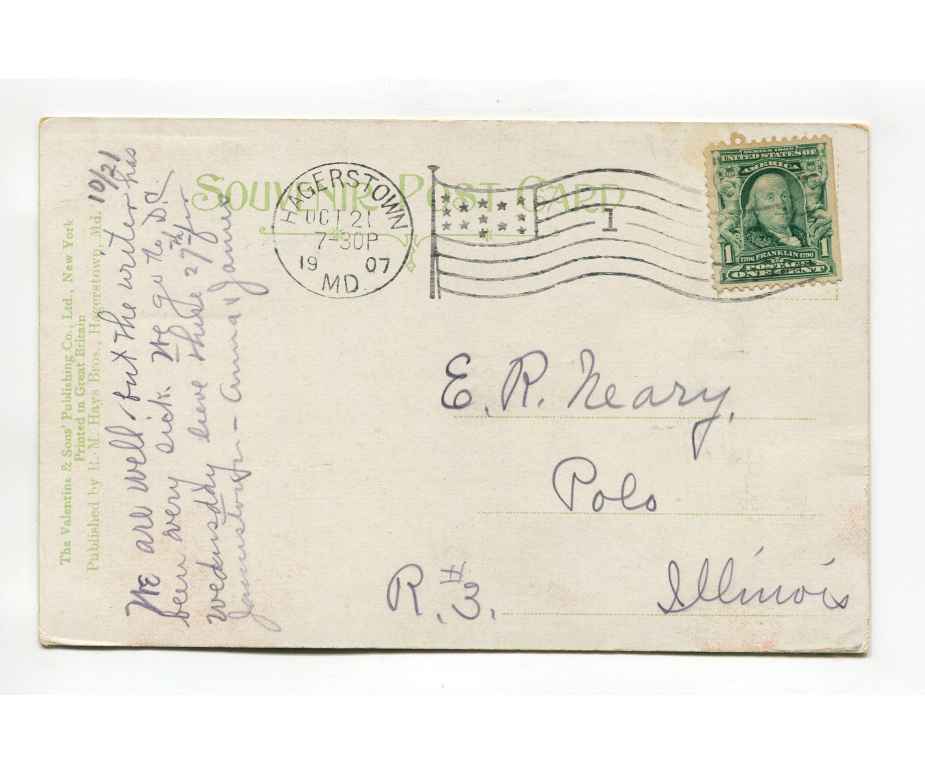 SOUVENIR POST CARD
HAGERSTOWN
OCT 21
7-30P
19 07
MD.
1
SERIES 1902
UNITED STATES OF
AMERICA
1 1706 FRANKLIN 1790 1
POSTAGE
ONE CENT
E. R. Neary.
Polo
R. #3.
Illinois
The Valentine & Sons' Publishing Co., Ltd., New York
Printed in Great Britain
Published by R. M. Hays Bros., Hagerstown, Md.
10/21
We are well, but the writer has
been very sick. We go to D.C.
wedensday lieve there 27th for
Jamestown – Anna & Jennie